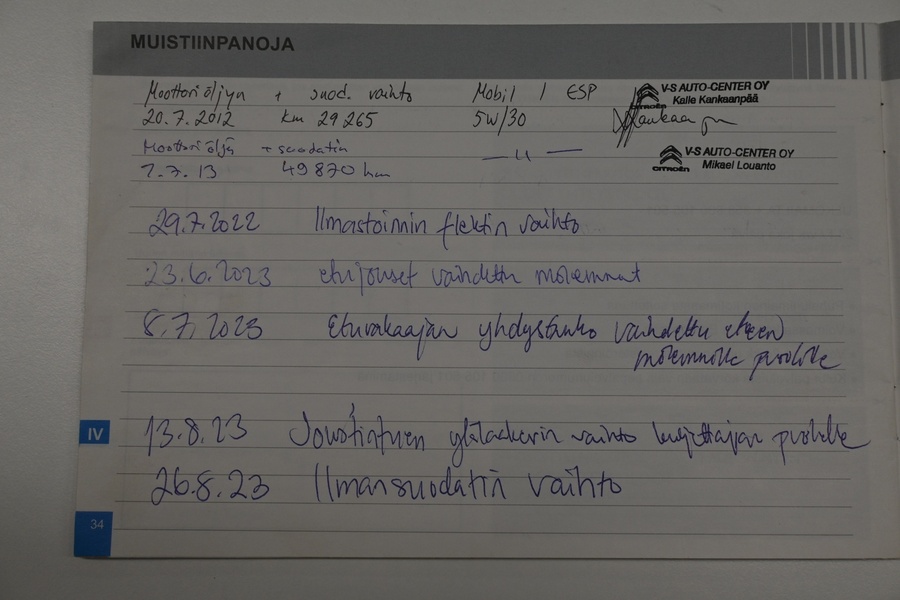 MUISTIINPANOJA
Moottoriöljyn + suod. vaihto Mobil 1 ESP V-S AUTO-CENTER OY
CITROËN Kalle Kankaanpää
20.7.2012 km 29 265 5W/30
Moottoriöljä + suodatin — 11 — V-S AUTO-CENTER OY
7.7.13 49 870 km CITROËN Mikael Louanto
29.7.2022 Ilmastoinnin flektin vaihto
23.6.2023 etujouset vaihdettu molemmat
8.7.2023 Etuvakaajan yhdystanko vaihdettu eteen
molemmille puolille
IV 13.8.23 Joustintuen ylälaakerin vaihto kuljettajan puolelle
26.8.23 Ilmansuodatin vaihto
34